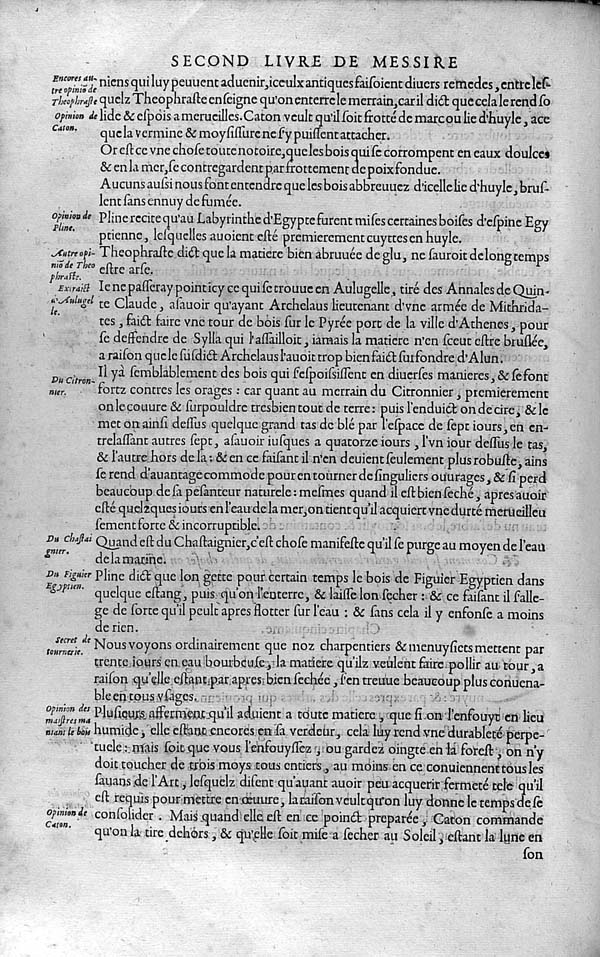 SECOND LIVRE DE MESSIRE
Encores au-
tre opinió de
Theophraste
niens qui luy peuuent aduenir, iceulx antiques faisoient diuers remedes, entre les-
quelz Theophraste enseigne qu'on enterre le merrain, car il dict que cela le rend so
Opinion de
Caton.
lide & espois a merueilles. Caton veult qu'il soit frotté de marc ou lie d'huyle, a ce
que la vermine & moysissure ne s'y puissent attacher.
Or est ce vne chose toute notoire, que les bois qui se corrompent en eaux doulces
& en la mer, se contregardent par frottement de poix fondue.
Aucuns aussi nous font entendre que les bois abbreuuez d'icelle lie d'huyle, brus-
lent sans ennuy de fumée.
Opinion de
Pline.
Pline recite qu'au Labyrinthe d'Egypte furent mises certaines boises d'espine Egy
ptienne, lesquelles auoient esté premierement cuyttes en huyle.
Autre opi-
nió de Theo
phraste.
Theophraste dict que la matiere bien abruuée de glu, ne sauroit de long temps
estre arse.
Extraict
d'Aulugel
le.
Ie ne passeray point icy ce qui se trouue en Aulugelle, tiré des Annales de Quin-
te Claude, asauoir qu'ayant Archelaus lieutenant d'vne armée de Mithrida-
tes, faict faire vne tour de bois sur le Pyrée port de la ville d'Athenes, pour
se deffendre de Sylla qui l'assailloit, iamais la matiere n'en sceut estre bruslée,
a raison que le susdict Archelaus l'auoit trop bien faict surfondre d'Alun.
Du Citron-
nier.
Il yà semblablement des bois qui s'espoississent en diuerses manieres, & se font
fortz contres les orages: car quant au merrain du Citronnier, premierement
on le couure & surpouldre tresbien tout de terre: puis l'enduict on de cire, & le
met on ainsi dessus quelque grand tas de blé par l'espace de sept iours, en en-
trelassant autres sept, asauoir iusques a quatorze iours, l'vn iour dessus le tas,
& l'autre hors de la: & en ce faisant il n'en deuient seulement plus robuste, ains
se rend d'auantage commode pour en tourner de singuliers ouurages, & si perd
beaucoup de sa pesanteur naturele: mesmes quand il est bien seché, apres auoir
esté quelzques iours en l'eau de la mer, on tient qu'il acquiert vne durté merueilleu
sement forte & incorruptible.
Du Chastai
gnier.
Quand est du Chastaignier, c'est chose manifeste qu'il se purge au moyen de l'eau
de la marine.
Du Figuier
Egyptien.
Pline dict que lon gette pour certain temps le bois de Figuier Egyptien dans
quelque estang, puis qu'on l'enterre, & laisse lon secher: & ce faisant il s'alle-
ge de sorte qu'il peult apres flotter sur l'eau: & sans cela il y enfonse a moins
de rien.
Secret de
tournerie.
Nous voyons ordinairement que noz charpentiers & menuysiers mettent par
trente iours en eau bourbeuse, la matiere qu'ilz veulent faire pollir au tour, a
raison qu'elle estant par apres bien sechée, s'en treuue beaucoup plus conuena-
ble en tous vsages.
Opinion des
maistres ma
niant le bois
Plusieurs afferment qu'il aduient a toute matiere, que si on l'enfouyt en lieu
humide, elle estant encores en sa verdeur, cela luy rend vne durableté perpe-
tuele: mais soit que vous l'enfouyssez, ou gardez oingte en la forest, on n'y
doit toucher de trois moys tous entiers, au moins en ce conuiennent tous les
sauans de l'Art, lesquelz disent qu'auant auoir peu acquerir fermeté tele qu'il
est requis pour mettre en œuure, la raison veult qu'on luy donne le temps de se
Opinion de
Caton.
consolider. Mais quand elle est en ce poinct preparée, Caton commande
qu'on la tire dehors, & qu'elle soit mise a secher au Soleil, estant la lune en
son